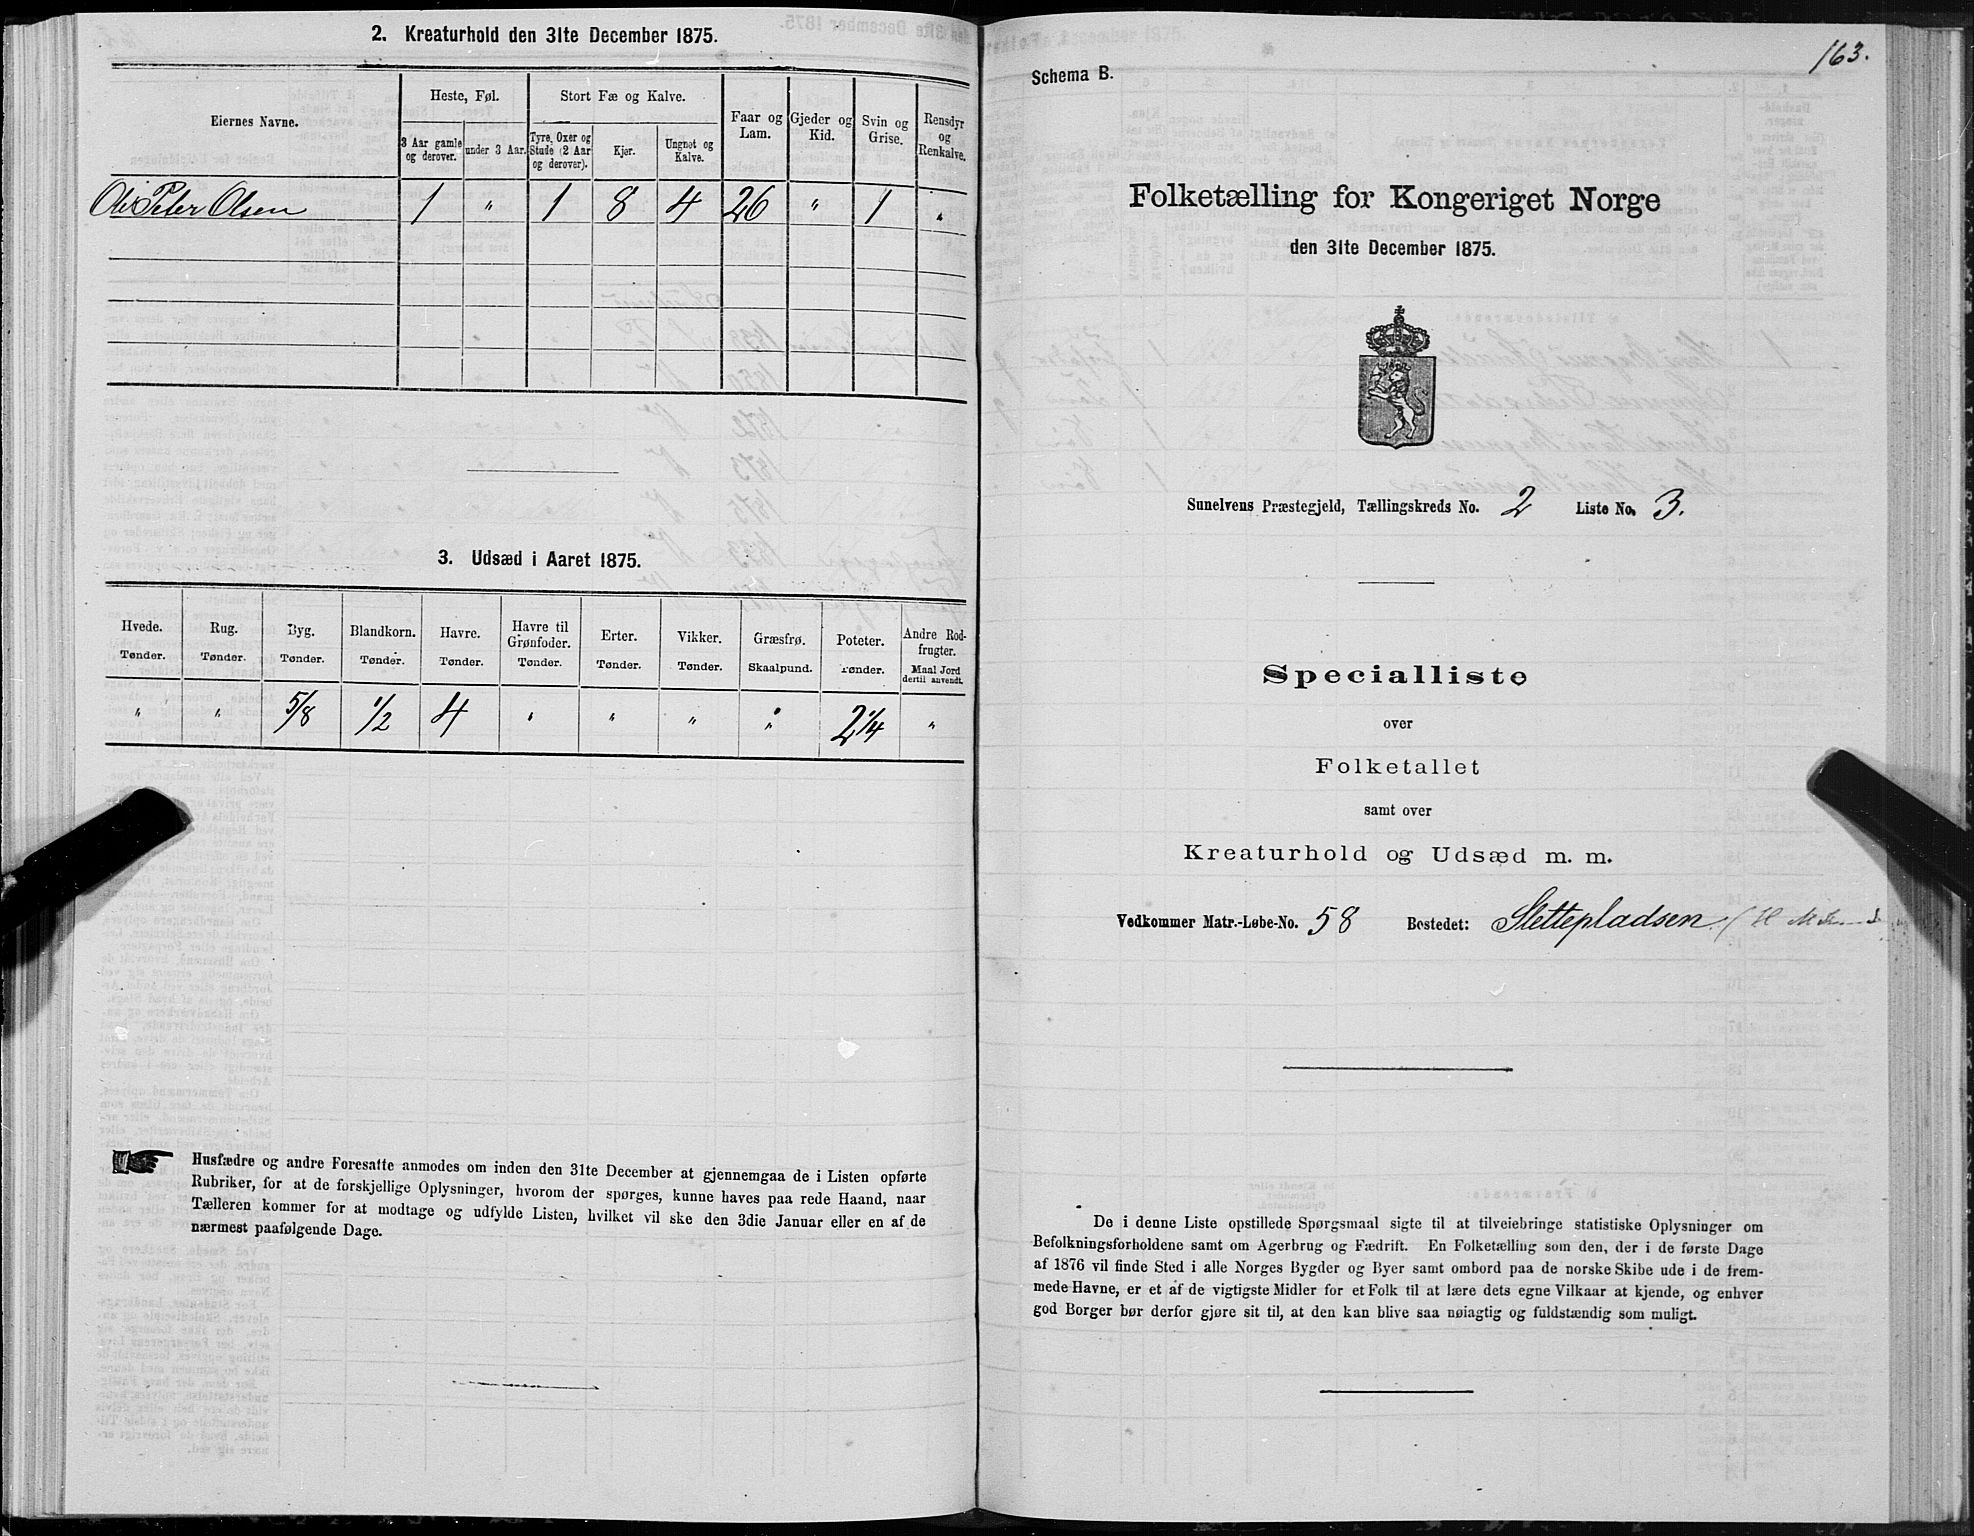 2. Kreaturhold den 31te December 1875.
Eiernes Navne.
Heste, Føl.
Stort Fæ og Kalve.
Faar og Lam.
Gjeder og Kid.
Svin og Grise.
Rensdyr og Renkalve.
3 Aar gamle og derover.
under 3 Aar.
Tyre, Oxer og Stude (2 Aar og derover).
Kjør.
Ungnøt og Kalve.
Ole Peter Olsen 1 " 1 8 4 26 " 1 "
3. Udsæd i Aaret 1875.
Hvede. Rug. Byg. Blandkorn. Havre. Havre til Grønfoder. Erter. Vikker. Græsfrø. Poteter. Andre Rodfrugter.
Tønder. Tønder. Tønder. Tønder. Tønder. Tønder. Tønder. Tønder. Skaalpund. Tønder. Maal Jord dertil anvendt.
" " 5/8 1/2 4 " " " " 2 1/4 "
Husfædre og andre Foresatte anmodes om inden den 31te December at gjennemgaa de i Listen opførte
Rubriker, for at de forskjellige Oplysninger, hvorom der spørges, kunne haves paa rede Haand, naar
Tælleren kommer for at modtage og udfylde Listen, hvilket vil ske den 3die Januar eller en af de
nærmest paafølgende Dage.
163.
Schema B.
Folketælling for Kongeriget Norge
den 31te December 1875.
Sunelvens Præstegjeld, Tællingskreds No. 2 Liste No. 3.
Specialliste
over
Folketallet
samt over
Kreaturhold og Udsæd m. m.
Vedkommer Matr.-Løbe-No. 58 Bostedet: Slettepladsen
De i denne Liste opstillede Spørgsmaal sigte til at tilveiebringe statistiske Oplysninger om
Befolkningsforholdene samt om Agerbrug og Fædrift. En Folketælling som den, der i de første Dage
af 1876 vil finde Sted i alle Norges Bygder og Byer samt ombord paa de norske Skibe ude i de frem-
mede Havne, er et af de vigtigste Midler for et Folk til at lære dets egne Vilkaar at kjende, og enhver
god Borger bør derfor gjøre sit til, at den kan blive saa nøiagtig og fuldstændig som muligt.